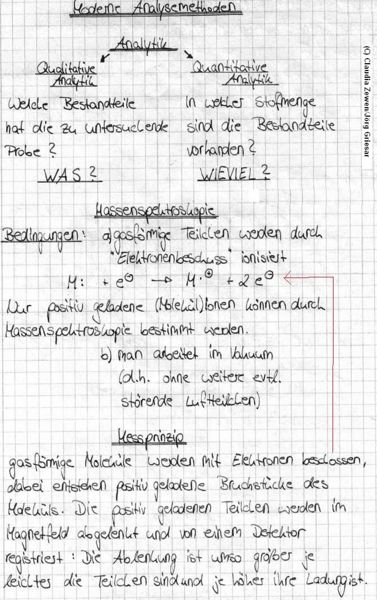 Moderne Analysemethoden
Analytik
Qualitative
Analytik
Welche Bestandteile
hat die zu untersuchende
Probe?
WAS?
Quantitative
Analytik
In welcher Stofmenge
sind die Bestandteile
vorhanden?
WIEVIEL?
(C) Claudia Zewen/Jörg Griesar
Massenspektroskopie
Bedingungen: a) gasförmige Teilchen werden durch
"Elektronenbeschuss" ionisiert
M: + e⊖ → M·⊕ + 2e⊖
Nur positiv geladene (Molekül)Ionen können durch
Massenspektroskopie bestimmt werden.
b) man arbeitet im Vakuum
(d.h. ohne weitere evtl.
störende Luftteilchen)
Messprinzip
gasförmige Moleküle werden mit Elektronen beschossen,
dabei entstehen positiv geladene Bruchstücke des
Moleküls. Die positiv geladenen Teilchen werden im
Magnetfeld abgelenkt und von einem Detektor
registriert: Die Ablenkung ist umso größer je
leichtes die Teilchen sind und je höher ihre Ladung ist.